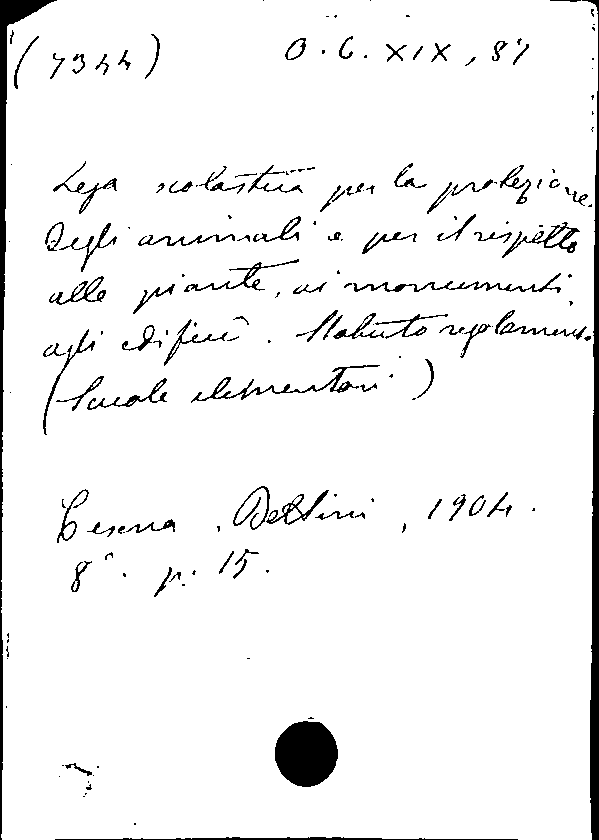 (7344) O. C. XIX, 87
Lega scolastica per la protezione
degli animali e per il rispetto
alle piante, ai monumenti,
agli edifici. Statuto regolamento
(Scuole elementari)
Cesena, Bettini, 1904.
8°. p. 15.